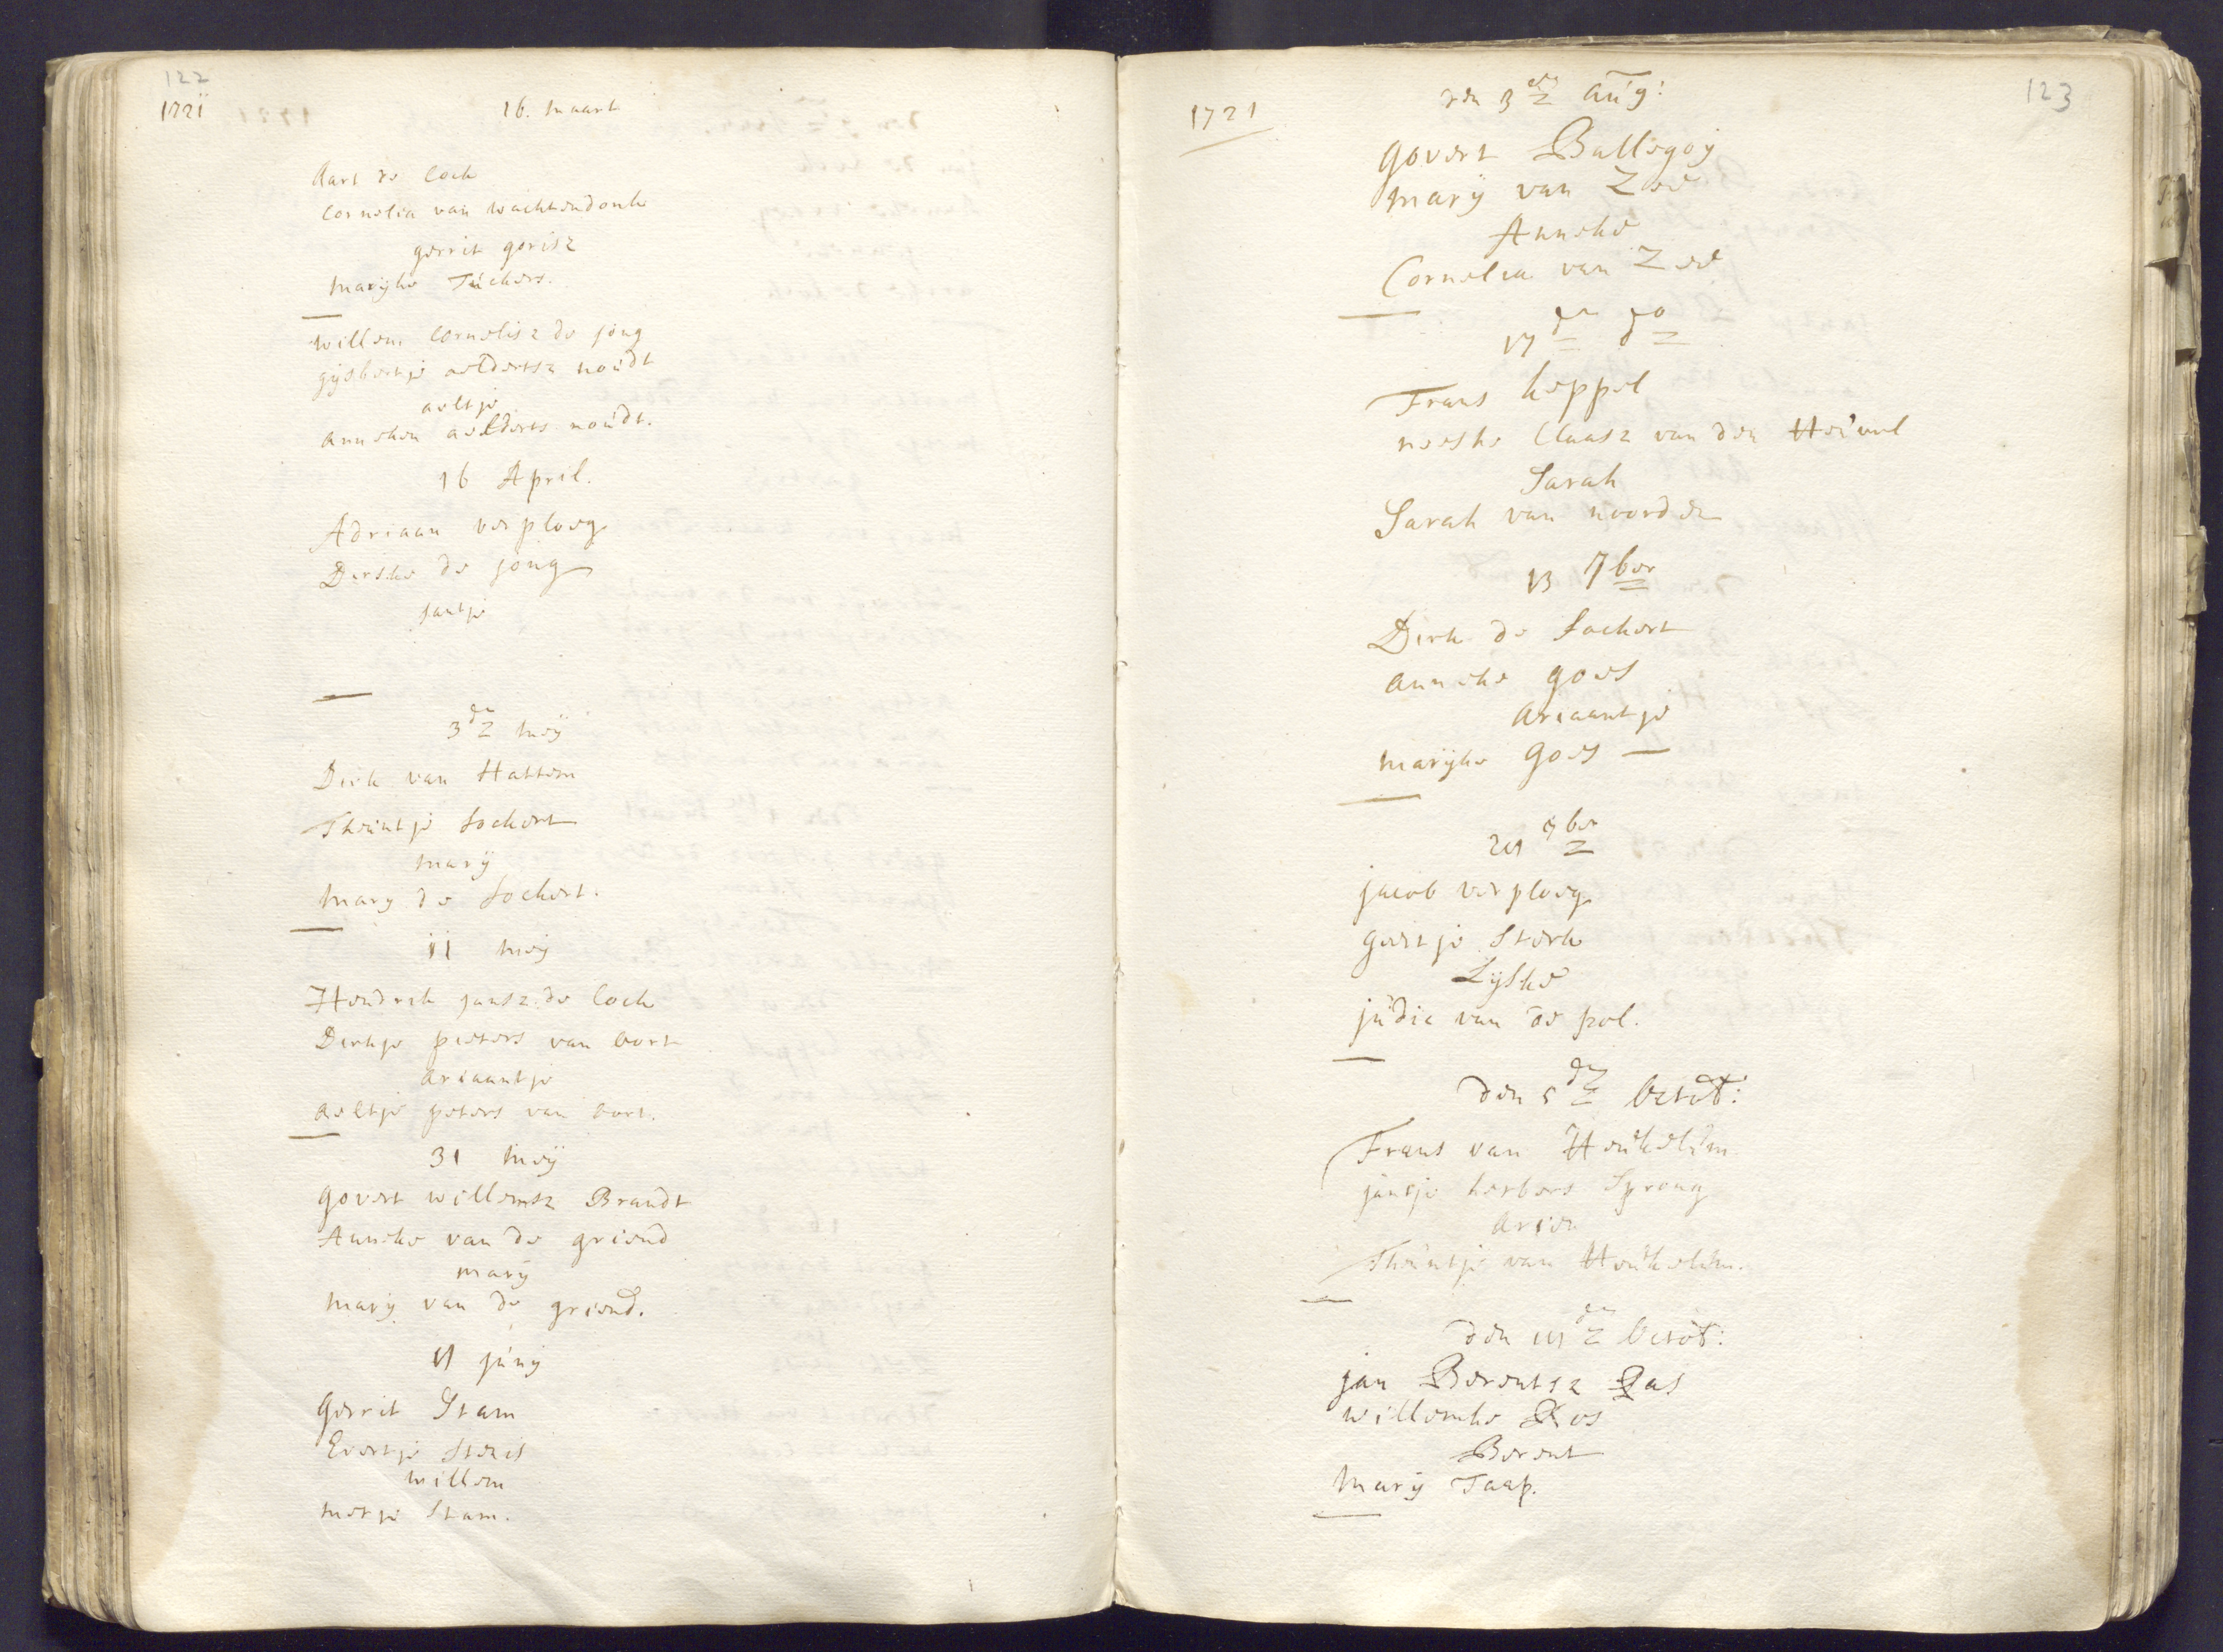 122
1721
16. maart
Aart de Cock
Cornelia van wachtendonk
gerrit gorisz
marijke Tuckers.
willem Cornelisz de jong
gijsbertje aeldertsz noudt
aeltje
anneken aelderts noudt.
16 April.
Adriaan verploeg
Dirske de jong
jantje
3de meij
Dirk van Hattem
Theuntje Lockert
marij
mary de Lockert.
11 meij
Hendrik jansz de Cock
Dirkje pieters van oort
Ariaantje
aeltje peters van oort.
31 meij
govert willemsz Brandt
Anneke van de griend
marij
marij van de griend.
junij
gerrit Stam
Evertje
willem
metje Stam.
123
1721
den 3de aug:
govert Ballegoij
marij van Zee
Anneke
Cornelia van Zee
17de do
Frans keppel
neeske Claasz van den Heuvel
Sarah
Sarah van noorden
13 7ber
Dirk de Lockert
anneke goes
Ariaantje
marijke goes
7ber
jacob verploeg
geertje Sterk
Lijske
judic van de pol.
den 5de octob:
Frans van Heukelum
jantje herbers Sprong
Arien
Theuntje van Heukelum.
den octob:
jan Berentsz Bas
willemke Bos
Berent
Marij Taap.